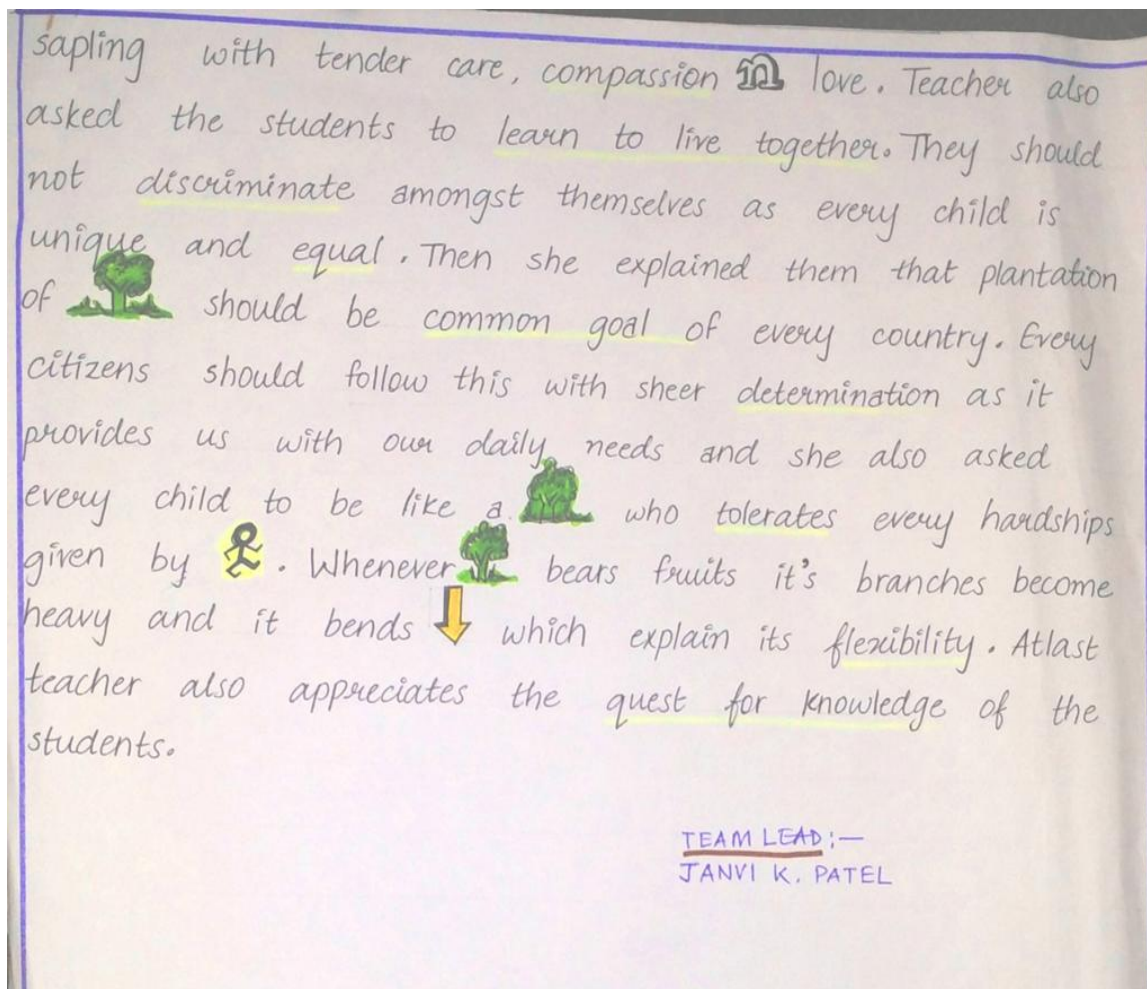 sapling with tender care, compassion n love. Teacher also
asked the students to learn to live together. They should
not discriminate amongst themselves as every child is
unique and equal. Then she explained them that plantation
of should be common goal of every country. Every
citizens should follow this with sheer determination as it
provides us with our daily needs and she also asked
every child to be like a who tolerates every hardships
given by . Whenever bears fruits it's branches become
heavy and it bends which explain its flexibility. Atlast
teacher also appreciates the quest for knowledge of the
students.
TEAM LEAD:-
JANVI K. PATEL